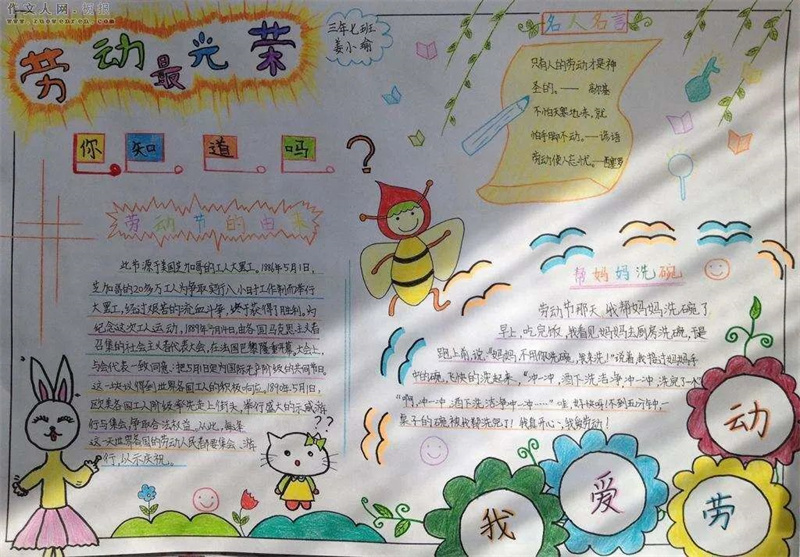 作文人网:
www.zuowenren.com
劳动最光荣
三年七班
姜小瑜
名人名言
只有人的劳动才是神
圣的。—— 高尔基
不怕天寒地冻,就
怕手脚不动。——谚语
劳动使人忘忧。——西塞罗
你知道吗?
劳动节的由来
此节源于美国芝加哥的工人大罢工。1886年5月1日,
芝加哥的20多万工人为争取实行八小时工作制而举行
大罢工,经过艰苦的流血斗争,终于获得了胜利。为
纪念这次工人运动,1889年7月14日,由各国马克思主义者
召集的社会主义者代表大会,在法国巴黎隆重开幕。大会上,
与会代表一致同意:把5月1日定为国际无产阶级的共同节日。
这一决议得到世界各国工人的积极响应。1890年5月1日,
欧美各国工人阶级率先走上街头,举行盛大的示威游
行与集会,争取合法权益。从此,每逢
这一天世界各国的劳动人民都要集会、游
行,以示庆祝。
??
帮妈妈洗碗
劳动节那天,我帮妈妈洗碗了
早上,吃完饭,我看见妈妈去厨房洗碗,于是
跑上前说:“妈妈,不用你洗碗,我来洗!”说着,我接过妈妈手
中的碗,飞快的洗起来,“冲一冲,洒下洗洁净冲一冲,洗完了一个
“啊,冲一冲,洒下洗洗洁净冲一冲……”哇,好快哟!不到五分钟,一
桌子的碗被我都洗完了!我真开心,我能劳动!
我爱劳动